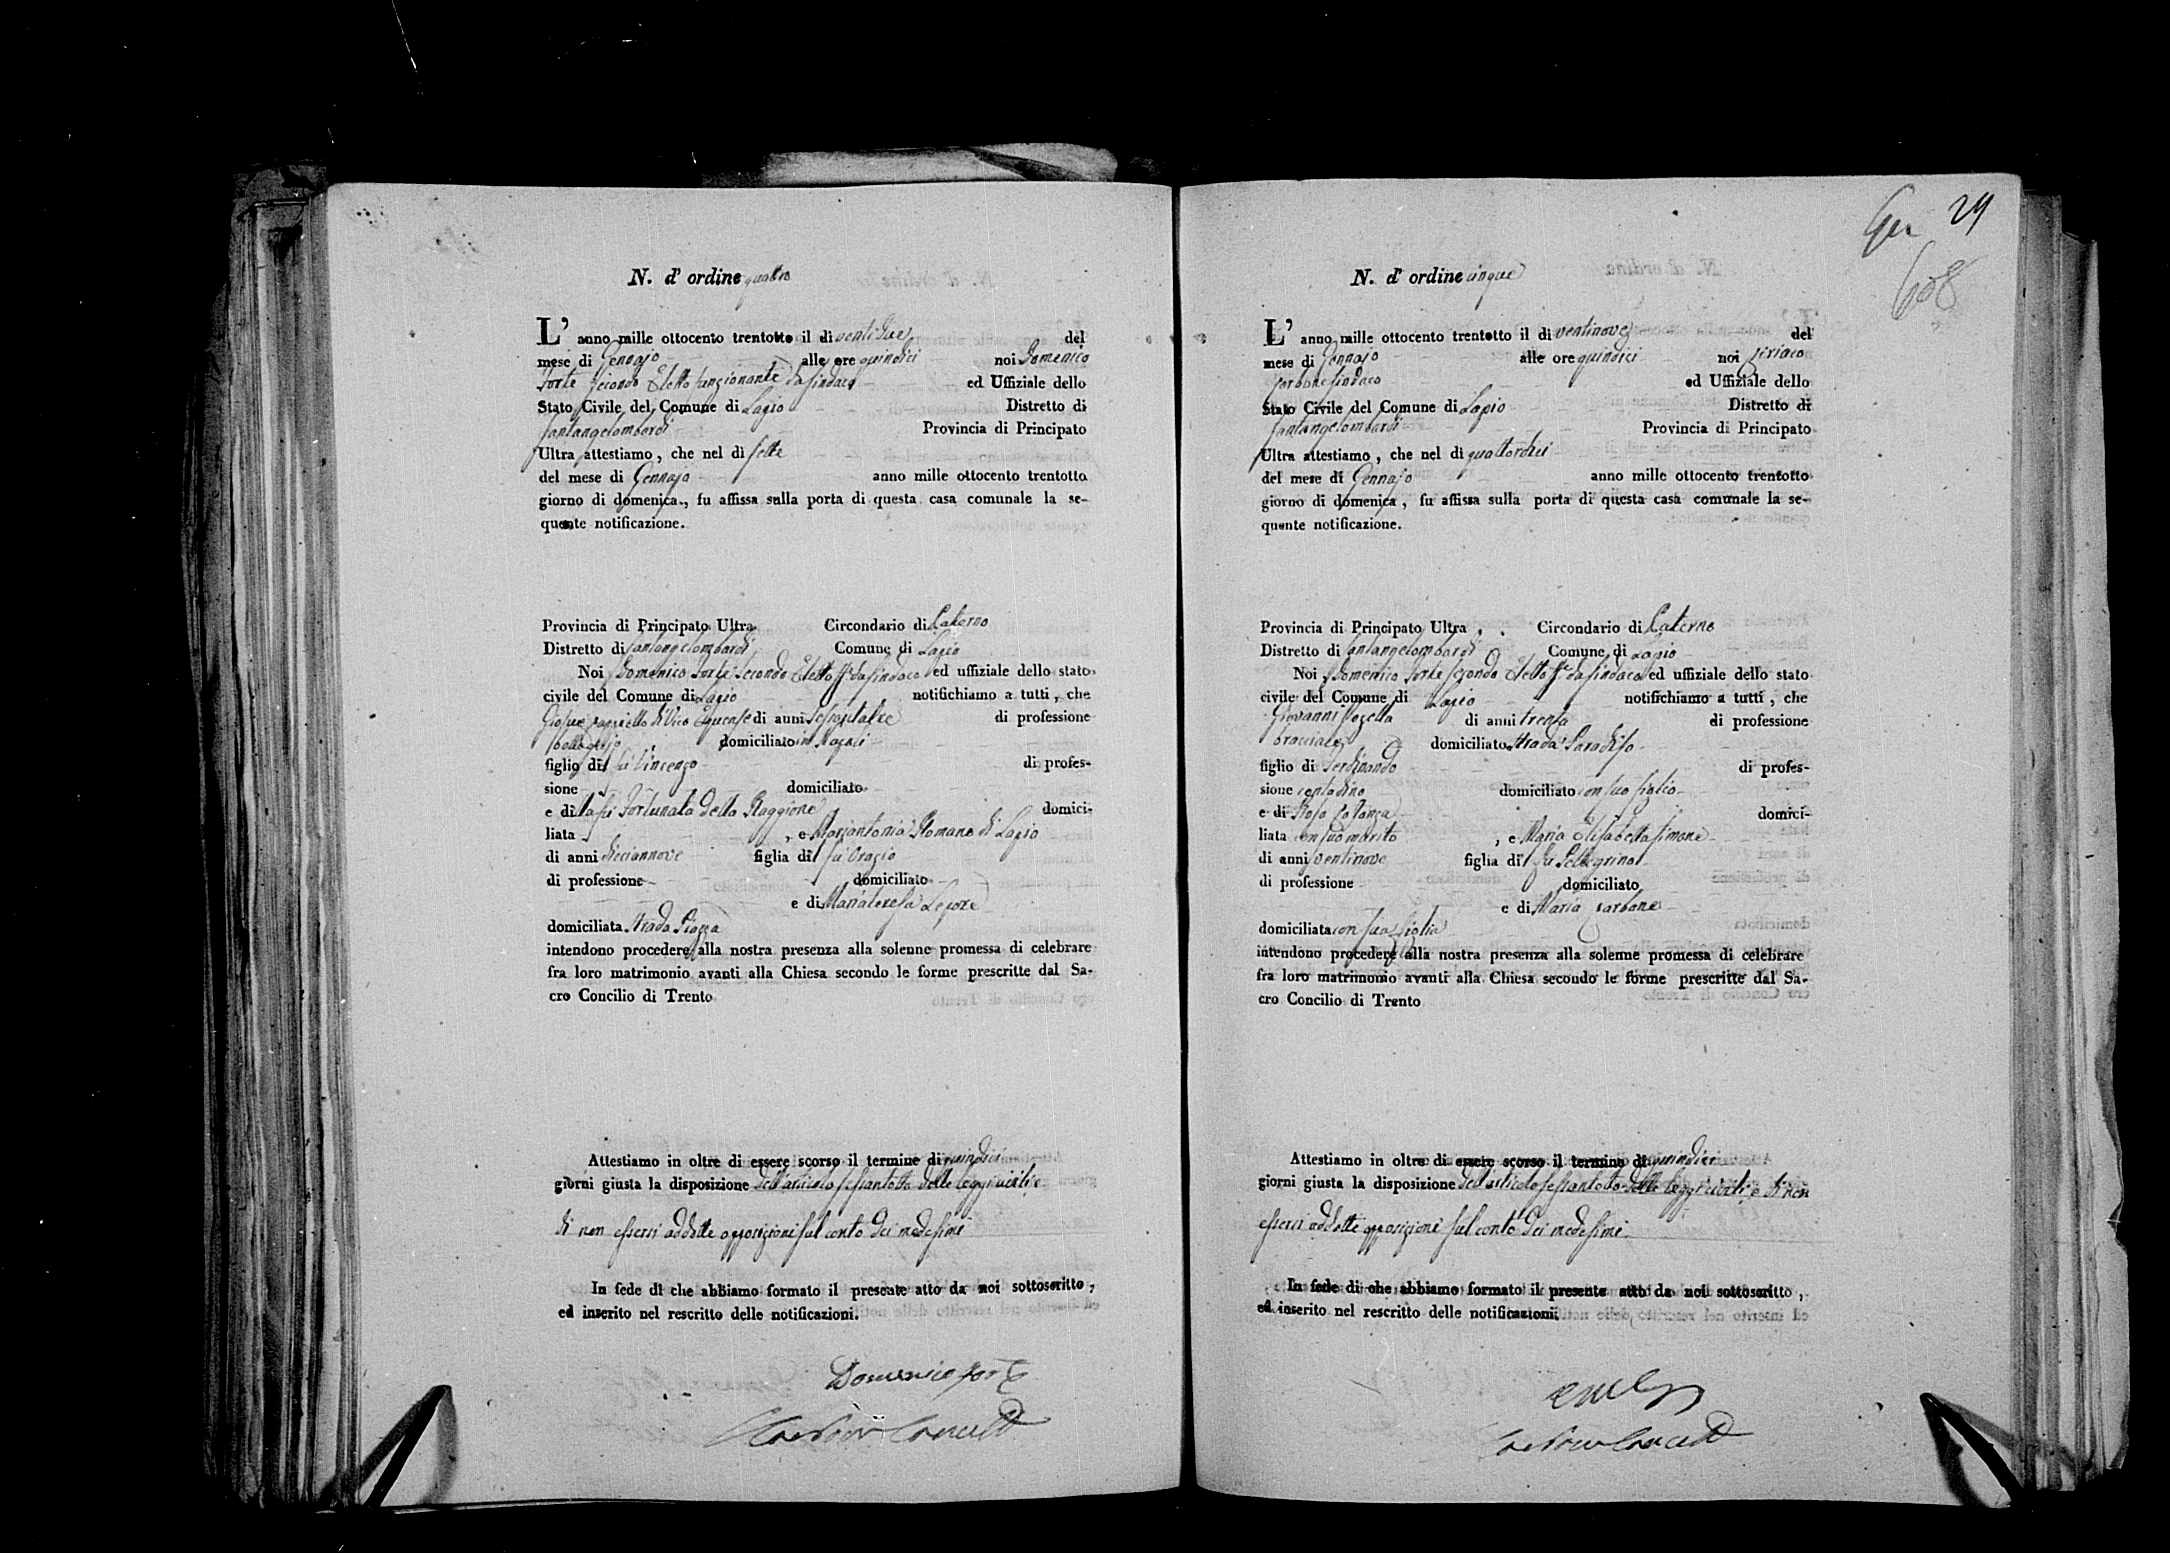 N. d' ordine quattro
L' anno mille ottocento trentotto il di ventidue del
mese di Gennajo alle ore quindici noi Domenico
Forte secondo Eletto funzionante da sindaco ed Uffiziale dello
Stato Civile del Comune di Lapio Distretto di
Santangelombardi Provincia di Principato
Ultra attestiamo, che nel dì sette
del mese di Gennajo anno mille ottocento trentotto
giorno di domenica, fu affissa sulla porta di questa casa comunale la se-
quente notificazione.
Provincia di Principato Ultra Circondario di Paterno
Distretto di Santangelombardi Comune di Lapio
Noi Domenico Forte secondo Eletto ff. da sindaco ed uffiziale dello stato
civile del Comune di Lapio notifichiamo a tutti, che
Giosuè di Vico Equense di anni sessantatre di professione
domiciliato in Napoli
figlio di fu Vincenzo di profes-
sione domiciliato
e di la fu Fortunata della Raggione domici-
liata , e Mariantonia Romano di Lapio
di anni diciannove figlia di fu Orazio
di professione domiciliato
e di Mariateresa Lepore
domiciliata strada Piazza
intendono procedere alla nostra presenza alla solenne promessa di celebrare
fra loro matrimonio avanti alla Chiesa secondo le forme prescritte dal Sa-
cro Concilio di Trento
Attestiamo in oltre di essere scorso il termine di quindici
giorni giusta la disposizione dell'articolo sessantotto delle leggi civili e
di non essersi addotte opposizioni sul conto dei medesimi
In fede di che abbiamo formato il presente atto da noi sottoscritto,
ed inserito nel rescritto delle notificazioni.
Domenico Forte
Gen 29
608
N. d' ordine cinque
L' anno mille ottocento trentotto il di ventinove del
mese di Gennajo alle ore quindici noi Ciriaco
Carbone sindaco ed Uffiziale dello
Stato Civile del Comune di Lapio Distretto di
Santangelombardi Provincia di Principato
Ultra attestiamo, che nel dì quattordici
del mese di Gennajo anno mille ottocento trentotto
giorno di domenica, fu affissa sulla porta di questa casa comunale la se-
quente notificazione.
Provincia di Principato Ultra Circondario di Paterno
Distretto di Santangelombardi Comune di Lapio
Noi Domenico Forte secondo Eletto ff. da sindaco ed uffiziale dello stato
civile del Comune di Lapio notifichiamo a tutti, che
Giovanni di anni trenta di professione
bracciale domiciliato strada Paradiso
figlio di Ferdinando di profes-
sione contadino domiciliato con suo figlio
e di Rosa domici-
liata con suo marito , e Maria Elisabetta Simone
di anni ventinove figlia di fu Pellegrino
di professione domiciliato
e di Maria Carbone
domiciliata con sua figlia
intendono procedere alla nostra presenza alla solenne promessa di celebrare
fra loro matrimonio avanti alla Chiesa secondo le forme prescritte dal Sa-
cro Concilio di Trento
Attestiamo in oltre di essere scorso il termine di quindici
giorni giusta la disposizione dell'articolo sessantotto delle leggi civili e di non
essersi addotte opposizioni sul conto dei medesimi
In fede di che abbiamo formato il presente atto da noi sottoscritto,
ed inserito nel rescritto delle notificazioni.